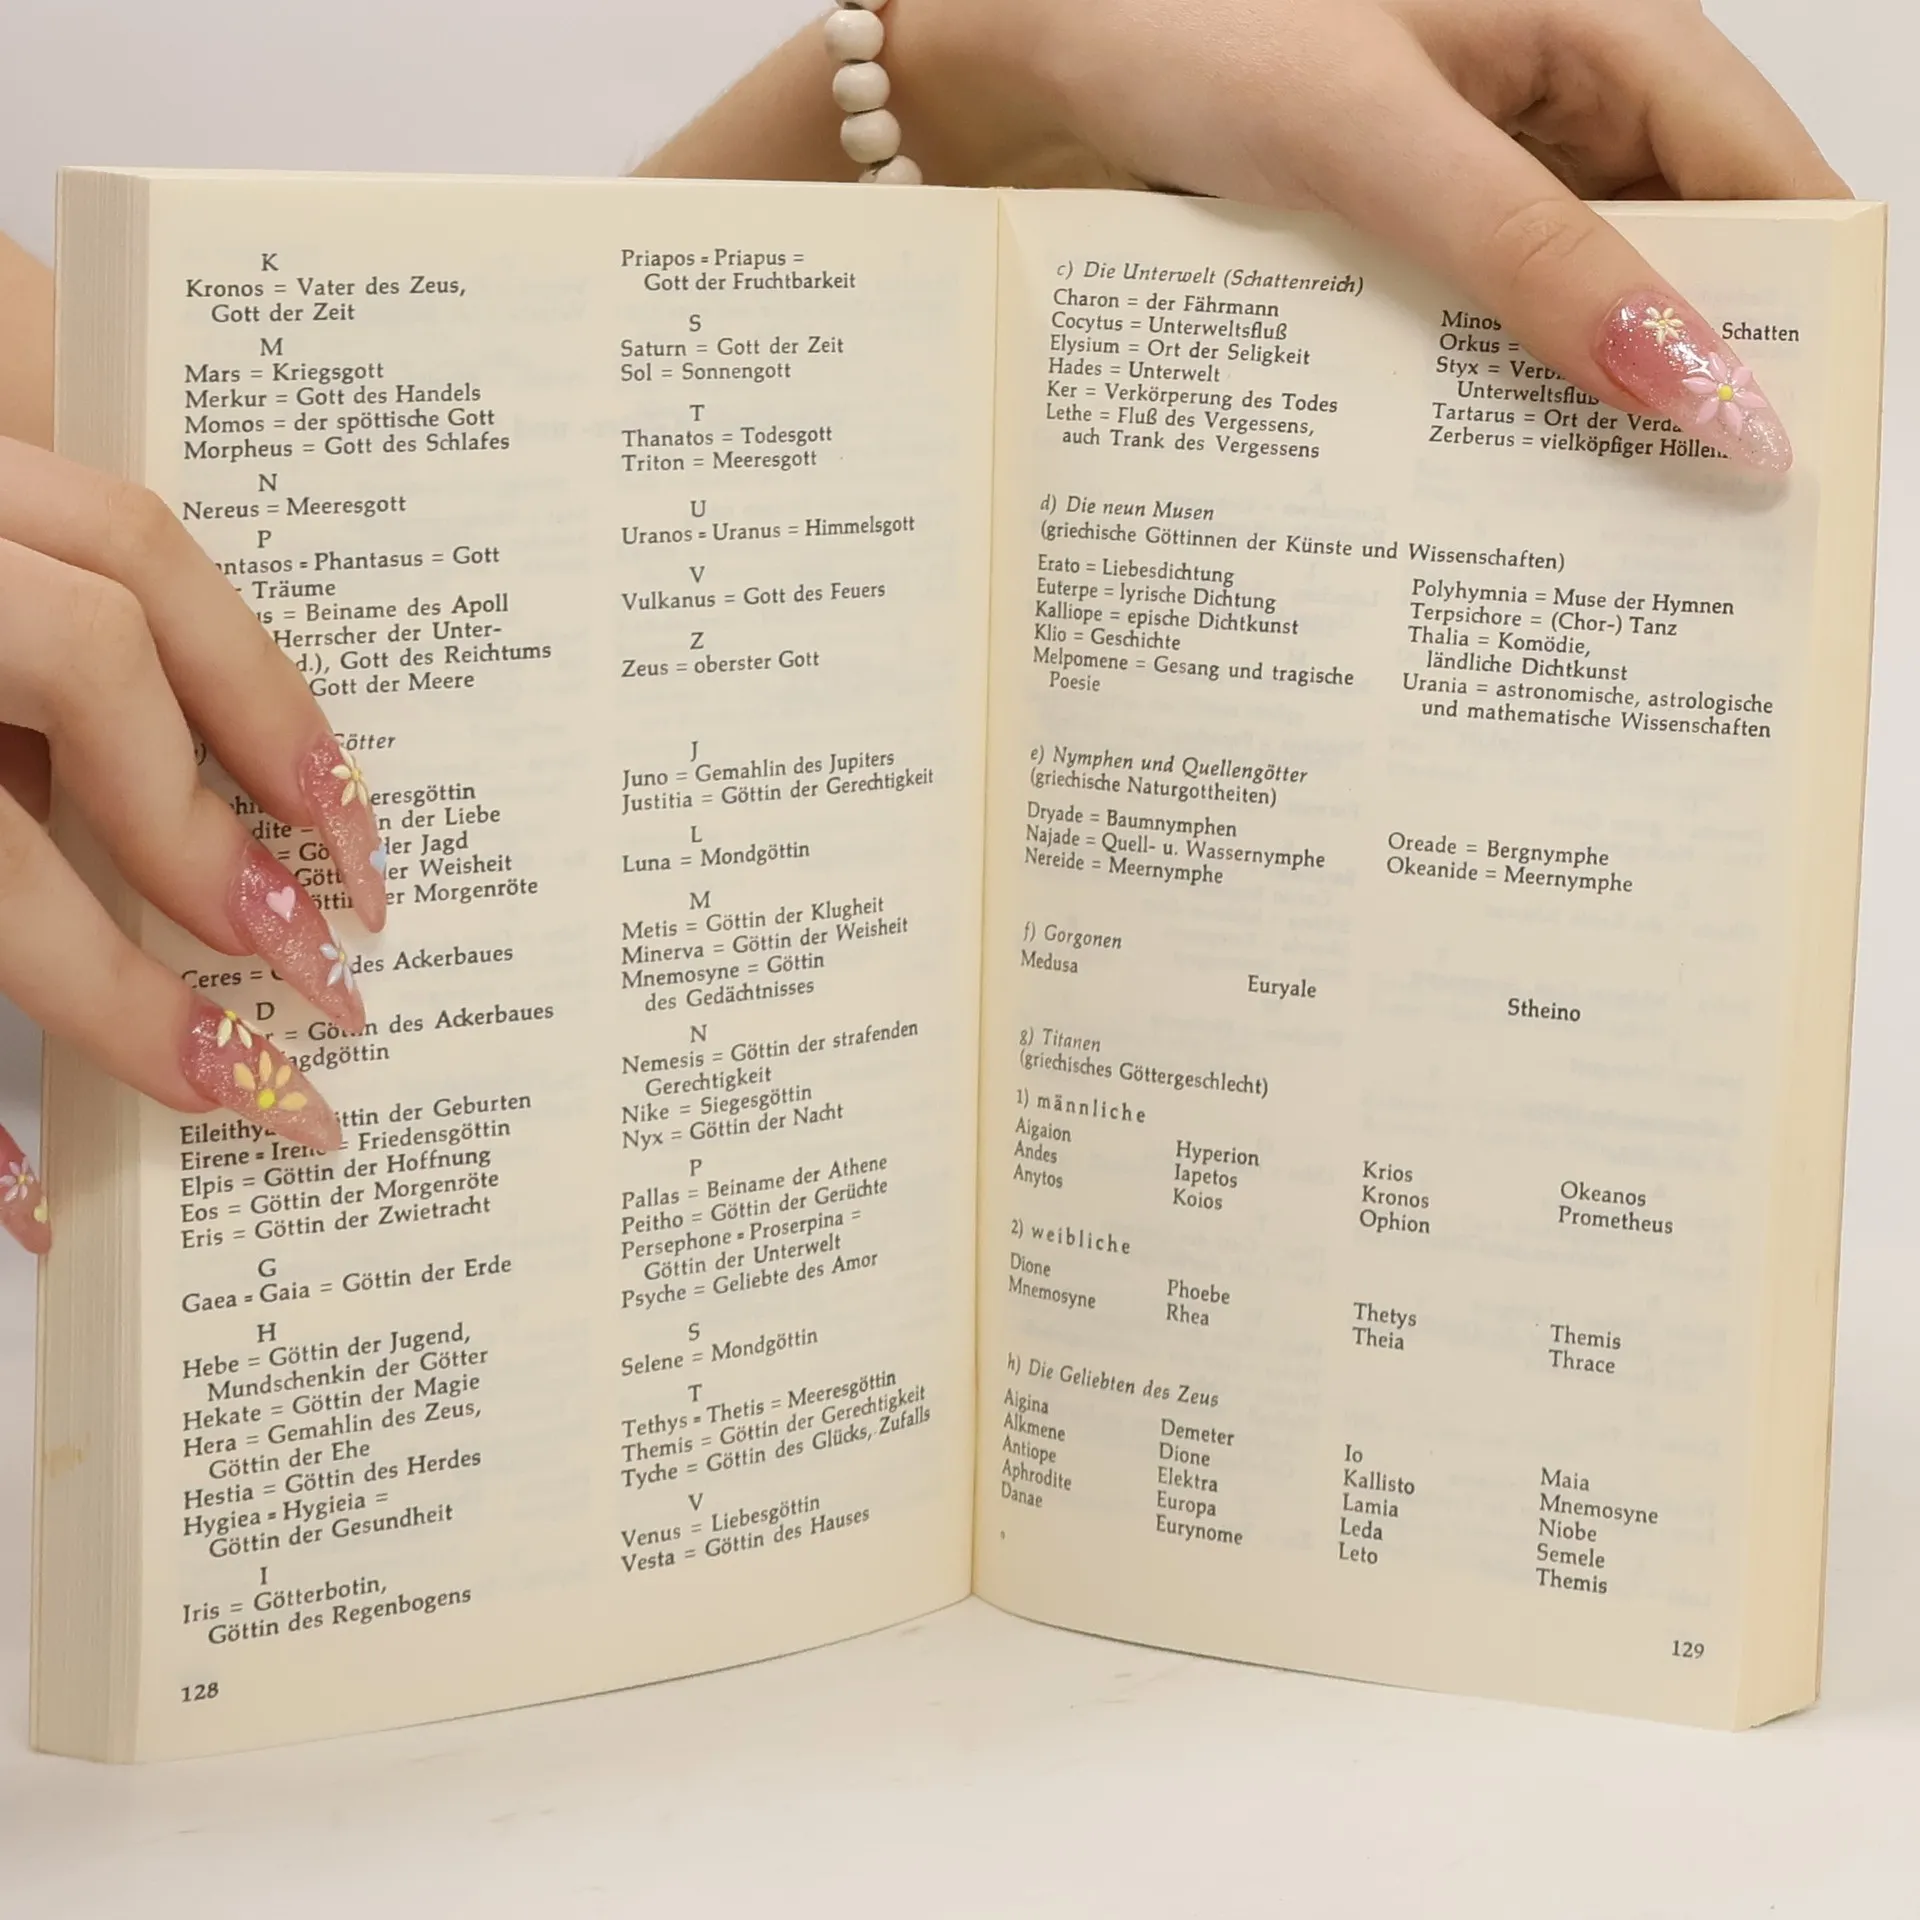 K
Kronos = Vater des Zeus,
Gott der Zeit
M
Mars = Kriegsgott
Merkur = Gott des Handels
Momos = der spöttische Gott
Morpheus = Gott des Schlafes
N
Nereus = Meeresgott
P
= Phantasus = Gott
Träume
= Beiname des Apoll
Herrscher der Unter-
Gott des Reichtums
Gott der Meere
Priapos = Priapus =
Gott der Fruchtbarkeit
S
Saturn = Gott der Zeit
Sol = Sonnengott
T
Thanatos = Todesgott
Triton = Meeresgott
U
Uranos = Uranus = Himmelsgott
V
Vulkanus = Gott des Feuers
Z
Zeus = oberster Gott
der Liebe
Jagd
Weisheit
Morgenröte
Ceres = des Ackerbaues
D
= des Ackerbaues
der Geburten
Eirene = = Friedensgöttin
Elpis = Göttin der Hoffnung
Eos = Göttin der Morgenröte
Eris = Göttin der Zwietracht
G
Gaea = Gaia = Göttin der Erde
H
Hebe = Göttin der Jugend,
Mundschenkin der Götter
Hekate = Göttin der Magie
Hera = Gemahlin des Zeus,
Göttin der Ehe
Hestia = Göttin des Herdes
Hygiea = Hygieia =
Göttin der Gesundheit
I
Iris = Götterbotin,
Göttin des Regenbogens
J
Juno = Gemahlin des Jupiters
Justitia = Göttin der Gerechtigkeit
L
Luna = Mondgöttin
M
Metis = Göttin der Klugheit
Minerva = Göttin der Weisheit
Mnemosyne = Göttin
des Gedächtnisses
N
Nemesis = Göttin der strafenden
Gerechtigkeit
Nike = Siegesgöttin
Nyx = Göttin der Nacht
P
Pallas = Beiname der Athene
Peitho = Göttin der Gerüchte
Persephone = Proserpina =
Göttin der Unterwelt
Psyche = Geliebte des Amor
S
Selene = Mondgöttin
T
Tethys = Thetis = Meeresgöttin
Themis = Göttin der Gerechtigkeit
Tyche = Göttin des Glücks, Zufalls
V
Venus = Liebesgöttin
Vesta = Göttin des Hauses
128
c) Die Unterwelt (Schattenreich)
Charon = der Fährmann
Cocytus = Unterweltsfluß
Elysium = Ort der Seligkeit
Hades = Unterwelt
Ker = Verkörperung des Todes
Lethe = Fluß des Vergessens,
auch Trank des Vergessens
Minos Schatten
Orkus =
Styx =
Unterweltsfluß
Tartarus = Ort der
Zerberus = vielköpfiger
d) Die neun Musen
(griechische Göttinnen der Künste und Wissenschaften)
Erato = Liebesdichtung
Euterpe = lyrische Dichtung
Kalliope = epische Dichtkunst
Klio = Geschichte
Melpomene = Gesang und tragische
Poesie
Polyhymnia = Muse der Hymnen
Terpsichore = (Chor-) Tanz
Thalia = Komödie,
ländliche Dichtkunst
Urania = astronomische, astrologische
und mathematische Wissenschaften
e) Nymphen und Quellengötter
(griechische Naturgottheiten)
Dryade = Baumnymphen
Najade = Quell- u. Wassernymphe
Nereide = Meernymphe
Oreade = Bergnymphe
Okeanide = Meernymphe
f) Gorgonen
Medusa Euryale Stheino
g) Titanen
(griechisches Göttergeschlecht)
1) männliche
Aigaion Hyperion Krios Okeanos
Andes Iapetos Kronos Prometheus
Anytos Koios Ophion
2) weibliche
Dione Phoebe Thetys Themis
Mnemosyne Rhea Theia Thrace
h) Die Geliebten des Zeus
Aigina Demeter Io Maia
Alkmene Dione Kallisto Mnemosyne
Antiope Elektra Lamia Niobe
Aphrodite Europa Leda Semele
Danae Eurynome Leto Themis
129